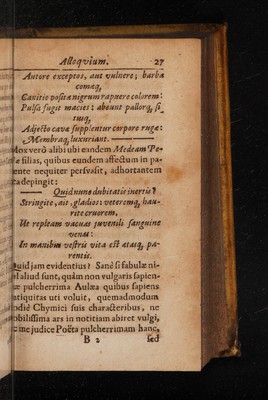 Alloquium. 27
Autore exceptos, aut vulnere; barba
comæq,
Canitie positâ nigrum rapuere colorem:
Pulsa fugit macies; abeunt pallorq, si
tusq,
Adjecto cavæ supplentur corpore rugæ:
Membraq, luxuriant.
Mox verò alibi ubi eandem Medeam Pe-
filias, quibus eundem affectum in pa-
nequiter persvasit, adhortantem
depingit:
Quid nunc dubitatis inertes?
Stringite, ait, gladios: veteremq, hau-
rite cruorem,
Ut repleam vacuas juvenili sanguine
venas:
In manibus vestris vita est ætasq, pa-
rentis.
Quid jam evidentius? Sanè si fabulæ ni-
aliud sunt, quàm non vulgaris sapien-
pulcherrima Aulæa quibus sapiens
antiquitas uti voluit, quemadmodum
hodiè Chymici suis characteribus, ne
nobilissima ars in notitiam abiret vulgi,
me judice Poëta pulcherrimam hanc,
B 2 sed